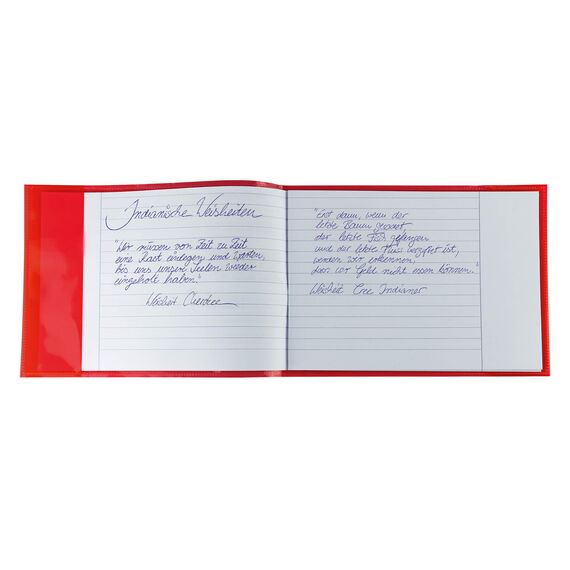 Indianische Weisheiten
"Wir müssen von Zeit zu Zeit
eine Rast einlegen und warten,
bis uns unsere Seelen wieder
eingeholt haben."
Weisheit Cherokee
"Erst dann, wenn der
letzte Baum gerodet
der letzte Fisch gefangen
und der letzte Fluss vergiftet ist,
werden wir erkennen,
dass wir Geld nicht essen können."
Weisheit Cree Indianer